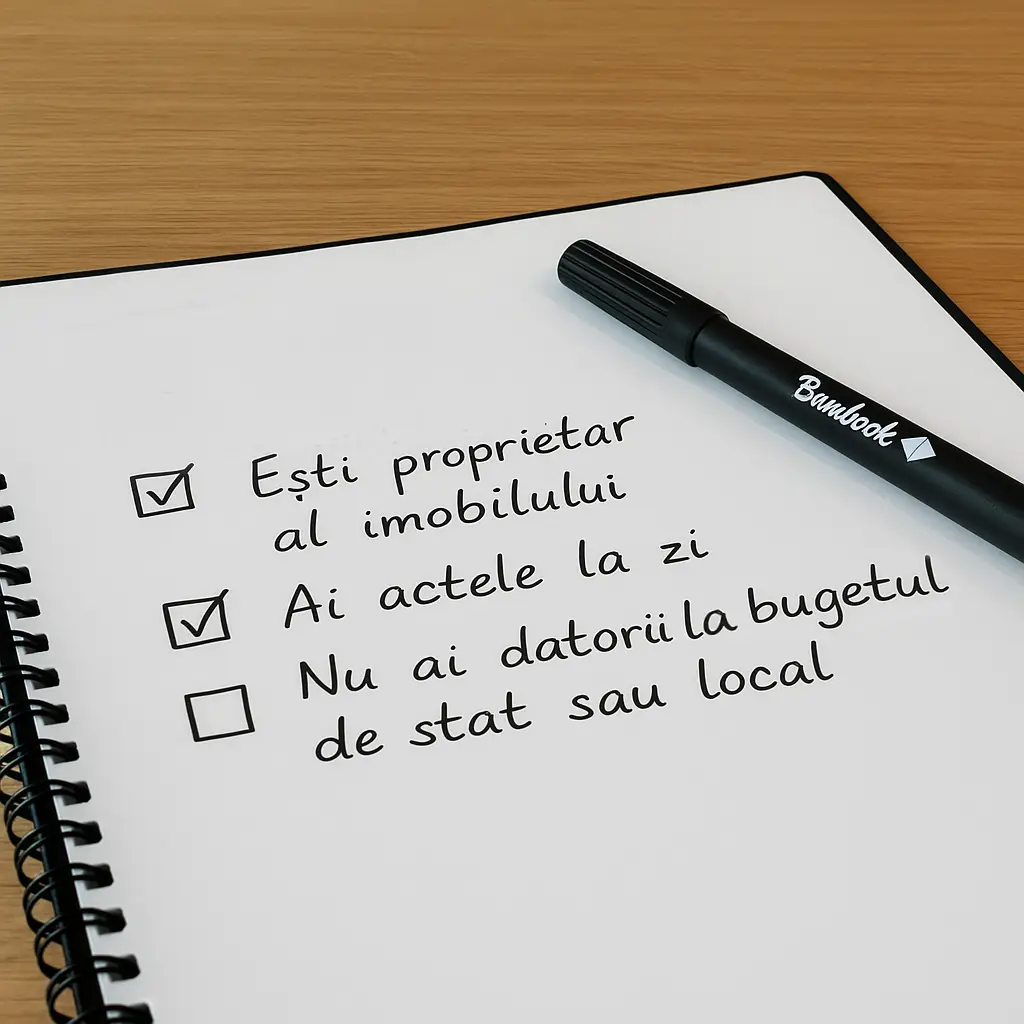 Bambook
Ești proprietar
al imobilului
Ai actele la zi
Nu ai datorii la bugetul
de stat sau local